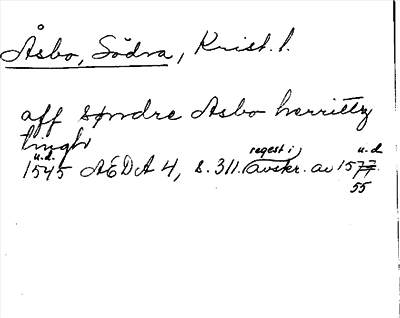 Åsbo, Södra, Krist. l.
aff søndre Asbo herritz
tingh
u.d. regest i u.d.
1545 AEDA 4, s. 311. avskr. av 1577
55